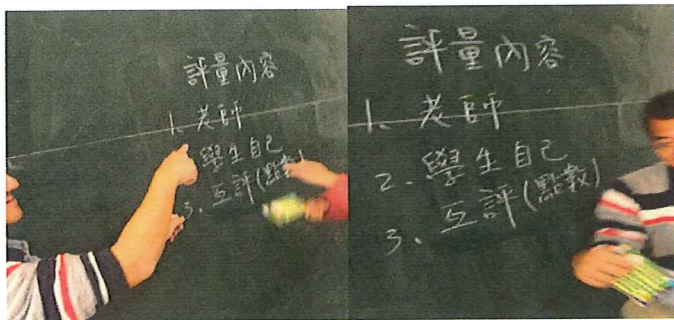 評量內容
1、老師
學生自己
3、互評(點數)
評量內容
1、老師
2、學生自己
3、互評(點數)